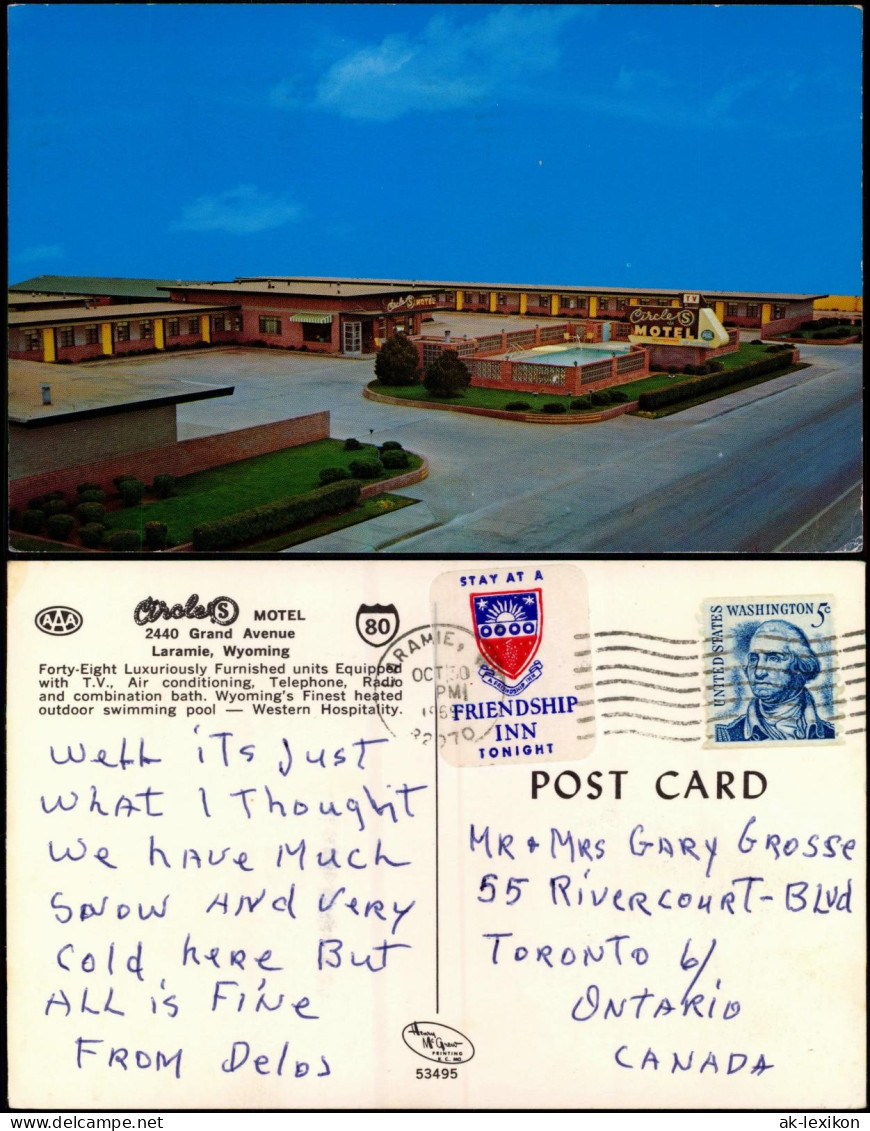 Circle S MOTEL
TV
Circle S
MOTEL
AAA
Circle S MOTEL
2440 Grand Avenue
Laramie, Wyoming
80
Forty-Eight Luxuriously Furnished units Equipped
with T.V., Air conditioning, Telephone, Radio
and combination bath. Wyoming's Finest heated
outdoor swimming pool — Western Hospitality.
LARAMIE,
OCT 30
PM
82070
STAY AT A
A FRIENDSHIP INN
FRIENDSHIP
INN
TONIGHT
UNITED STATES
WASHINGTON 5c
Well its Just
what I Thought
we have Much
Snow And very
cold here But
ALL is Fine
FROM Delos
POST CARD
MR & MRS GARY GROSSE
55 RIVERCOURT - BLVD
TORONTO 6/
ONTARIO
CANADA
Henry
McGrew
PRINTING
K. C. MO.
53495
ak-lexikon